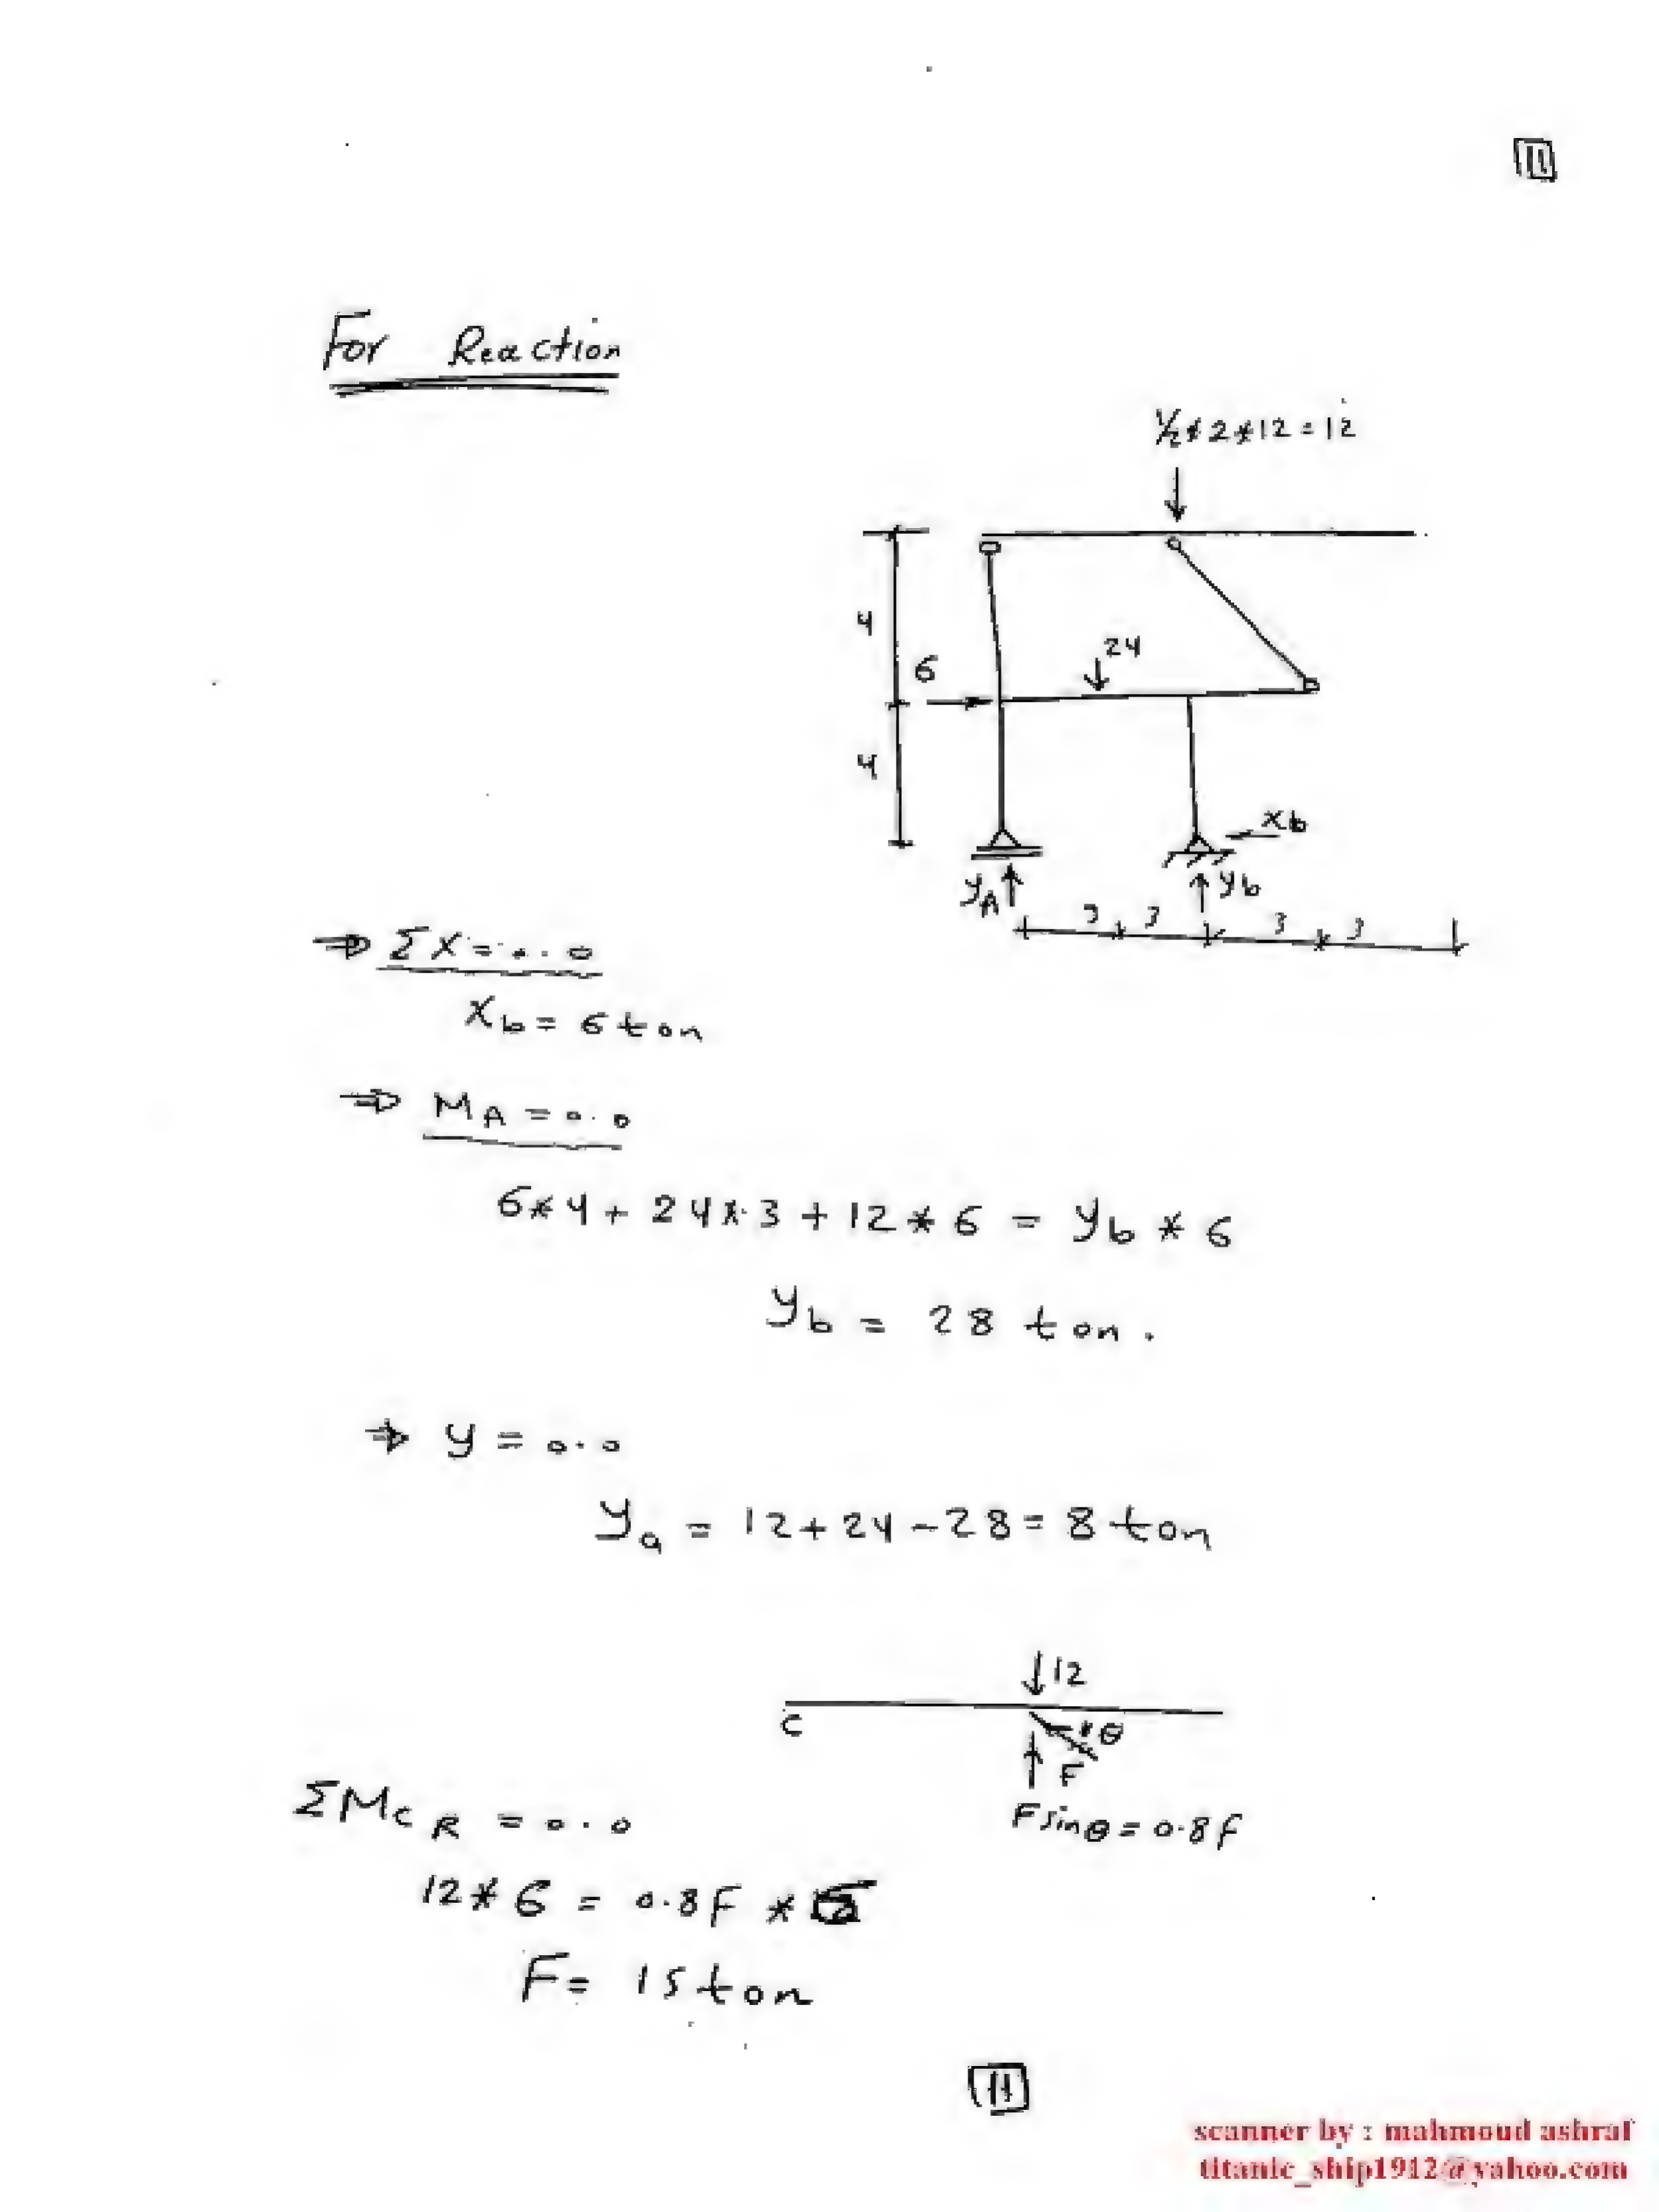 10
For Reaction
1/2*2*12=12
4
6
24
4
Xb
yA
yb
3 3 3 3
⇒ ΣX=0.0
Xb= 6 ton
⇒ MA=0.0
6*4+24*3+12*6 = yb*6
yb = 28 ton.
⇒ y=0.0
ya = 12+24-28=8 ton
12
C
θ
F
F sinθ=0.8F
ΣMCR =0.0
12*6 = 0.8F *
F= 15 ton
11
scanner by : mahmoud ashraf
titanic_ship1912@yahoo.com